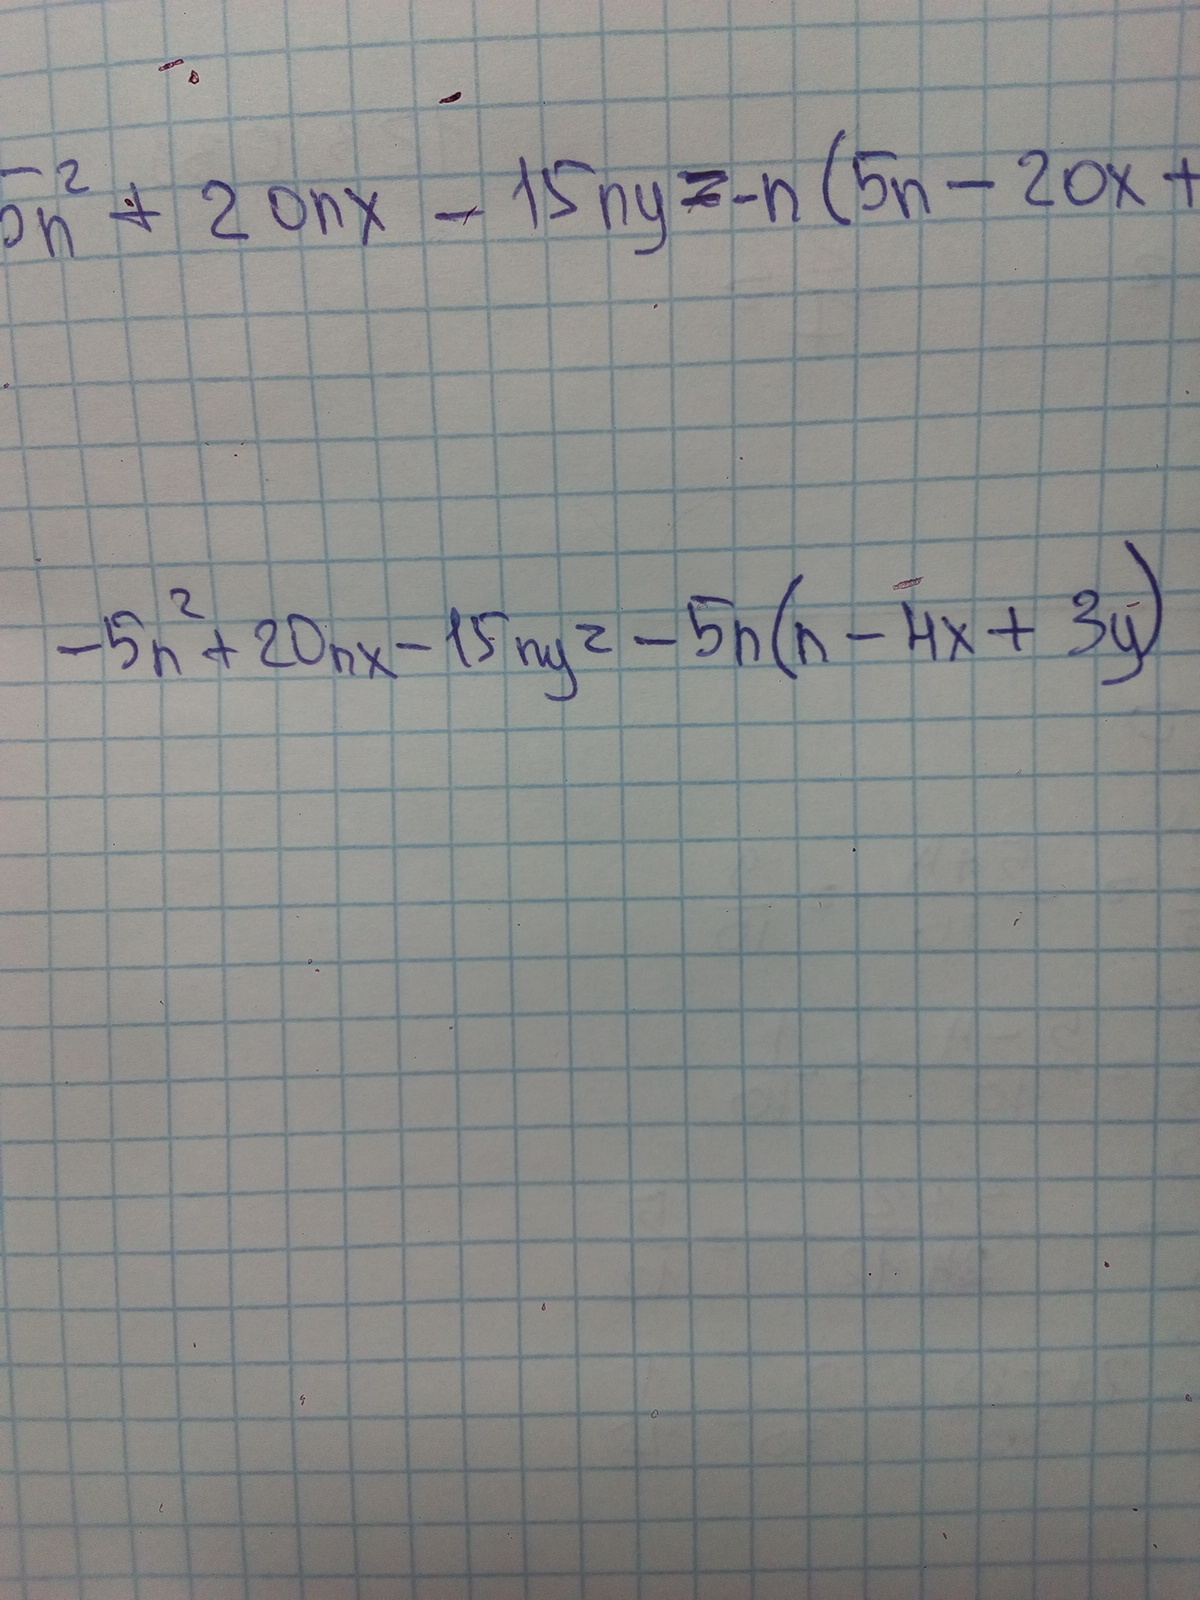 5n² + 20nx - 15ny = -n (5n - 20x +
-5n² + 20nx - 15ny = -5n(n - 4x + 3y)